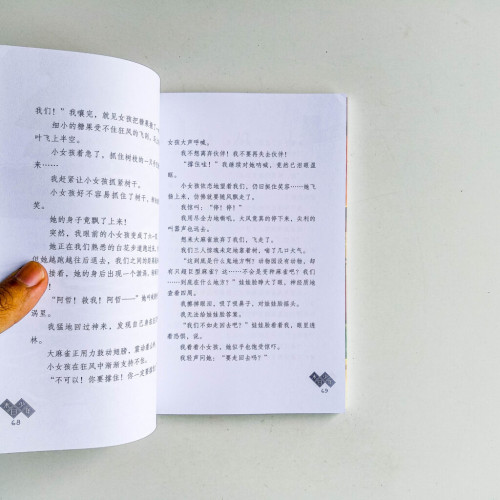 我们！”我嚷完，就见女孩把糖果
细小的糖果受不住狂风的飞
叶飞上半空。
小女孩着急了，抓住树枝的一只手
来……
我赶紧让小女孩抓紧树干。
小女孩好不容易抓住了树干，
笑。
她的身子竟飘了上来！
突然，我眼前的小女孩变成了
她正在我们熟悉的白花步道跑过
但她越跑越往后退去，我们之间的
接着，她的身后出现一个漩涡，
！
“阿哲！救我！阿哲——”她呼
涡里。
我猛地回过神来，发现自己
林。
大麻雀正用力鼓动翅膀，
小女孩在狂风中渐渐支持不住。
“不可以！你要撑住！你一定要
68
女孩大声呼喊。
我不想离弃伙伴！我不要再失去伙伴！
“撑住哇！”我继续对她呐喊，竟然已泪眼盈
眶。
小女孩状态地望着我们，仍旧抓住笑容……她飞
独上来，仿佛就要随风飘走了。
我惊叫：“停！停！”
我用尽全力地嘶吼，大风竟真的停下来，尖利的
叫嚣声也远去。
想来大麻雀放弃了我们，飞走了。
我们三人惊魂未定地靠着树，喘了几口大气。
“这到底是什么鬼地方啊？动物园没有动物，却
有只超巨型麻雀？这……不会是变种麻雀吧？我们……
到底在什么地方？”娃娃脸睁大了眼，神经质地
查看四周。
我挪掉眼泪，吸了吸鼻子，对娃娃脸摇头。
我无法给娃娃脸答案。
“我们不如走回去吧？”娃娃脸看着着我，眼里透
着恐惧，说。
我看着小女孩，她似乎也饱受惊吓。
我轻声问她：“要走回去吗？”
69